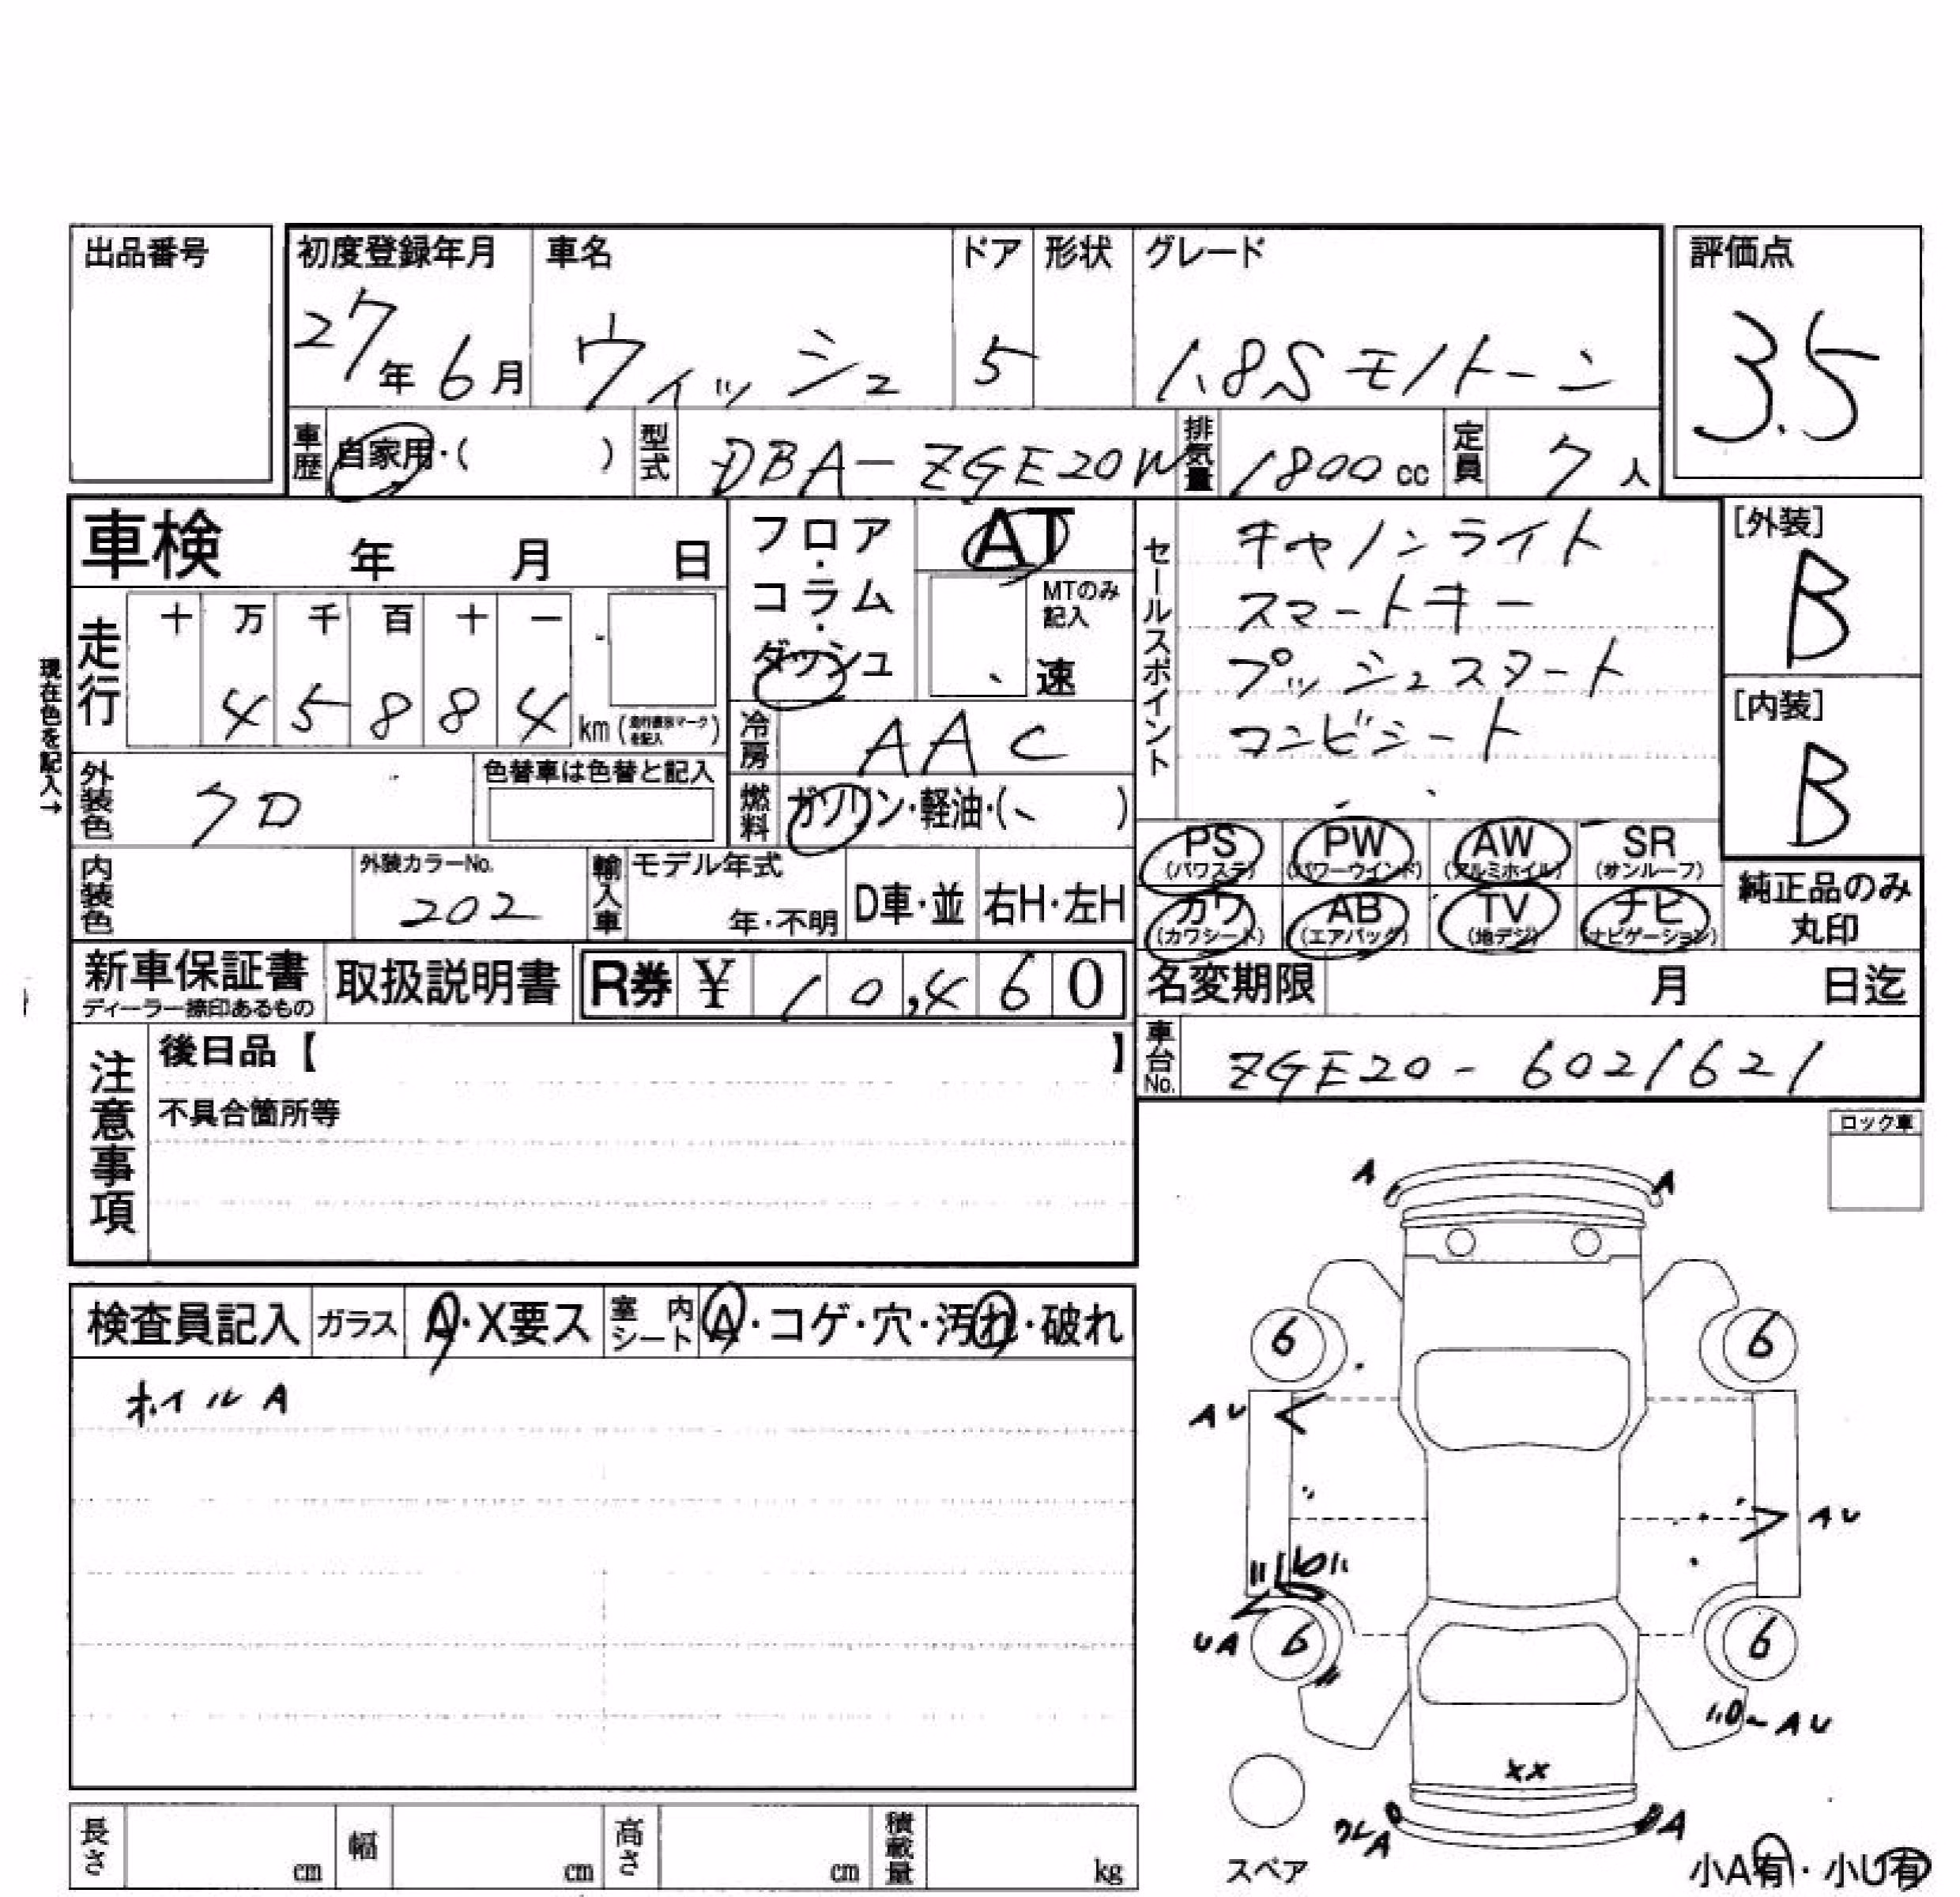 出品番号
初度登録年月 車名 ドア 形状 グレード 評価点
27年6月 ウィッシュ 5 1.8S モノトーン 3.5
車歴 自家用・( ) 型式 DBA-ZGE20W 排気量 1800cc 定員 7人
車検 年 月 日
フロア・コラム・ダッシュ
AT
MTのみ記入
速
セールスポイント
キャノンライト
スマートキー
プッシュスタート
コンビシート
[外装]
B
[内装]
B
現在色を記入→
走行 十 万 千 百 十 一
45884 km
冷房 AAC
外装色 クロ 色替車は色替と記入
燃料 ガソリン・軽油・( )
PS (パワステ) PW (パワーウインド) AW (アルミホイル) SR (サンルーフ)
カワ (カワシート) AB (エアバック) TV (地デジ) ナビ (ナビゲーション)
純正品のみ
丸印
内装色 外装カラーNo. 202 輸入車 モデル年式 年・不明 D車・並 右H・左H
新車保証書 ディーラー捺印あるもの 取扱説明書 R券 ¥ 10,460
名変期限 月 日迄
車台No. ZGE20-6021621
注意事項
後日品【 】
不具合箇所等
ロック車
検査員記入 ガラス A・X要ス 室内シート A・コゲ・穴・汚れ・破れ
ホイルA
A A
6 6
AU
AU
UA 6 6
AU
XX
A A
スペア
小A有・小U有
長さ cm 幅 cm 高さ cm 積載量 kg